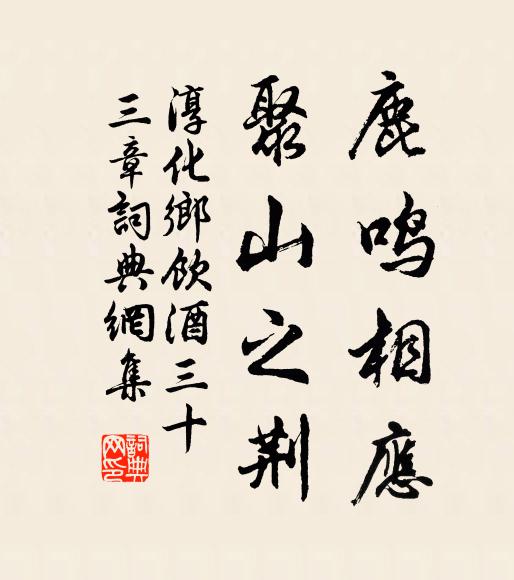 鹿鸣相應
聚山之荆
淳化鄉飲酒三十
三章詞典網集
詞典网印